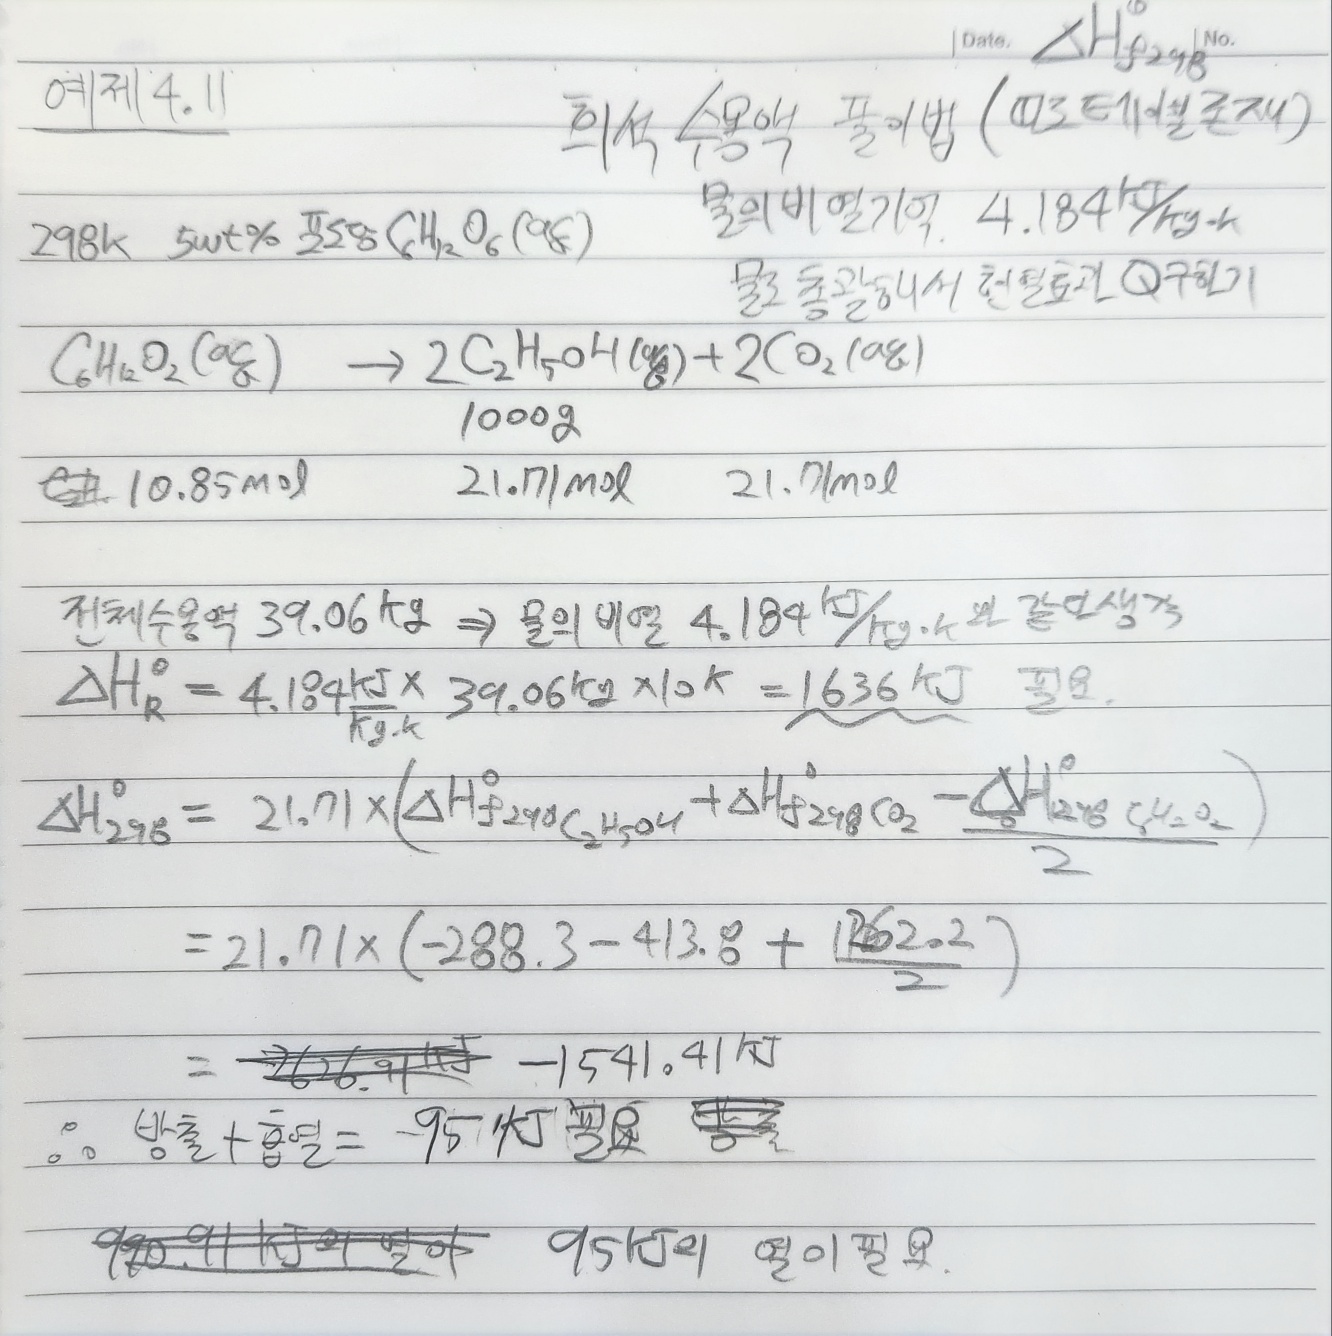 Date. ΔH°f298 No.
예제 4.11
희석 수용액 풀이법 (따로 테이블 존재)
물의 비열기억. 4.184 kJ/kg·k
298k 5wt% 포도당 C6H12O6 (aq)
물로 통괄해서 현열효과 Q구하기
C6H12O2 (aq) → 2C2H5OH (aq) + 2CO2 (aq)
1000g
10.85mol 21.71mol 21.71mol
전체수용액 39.06kg ⇒ 물의 비열 4.184 kJ/kg·k 와 같다 생각
ΔH°R = 4.184 kJ/kg·k × 39.06kg × 10k = 1636 kJ 필요.
ΔH°298 = 21.71 × (ΔH°f298 C2H5OH + ΔH°f298 CO2 - ΔH°f298 C6H12O2 / 2)
= 21.71 × (-288.3 - 413.8 + 1262.2 / 2)
= -1541.41 kJ
∴ 방출 + 흡열 = -95 kJ 필요
95kJ의 열이 필요.